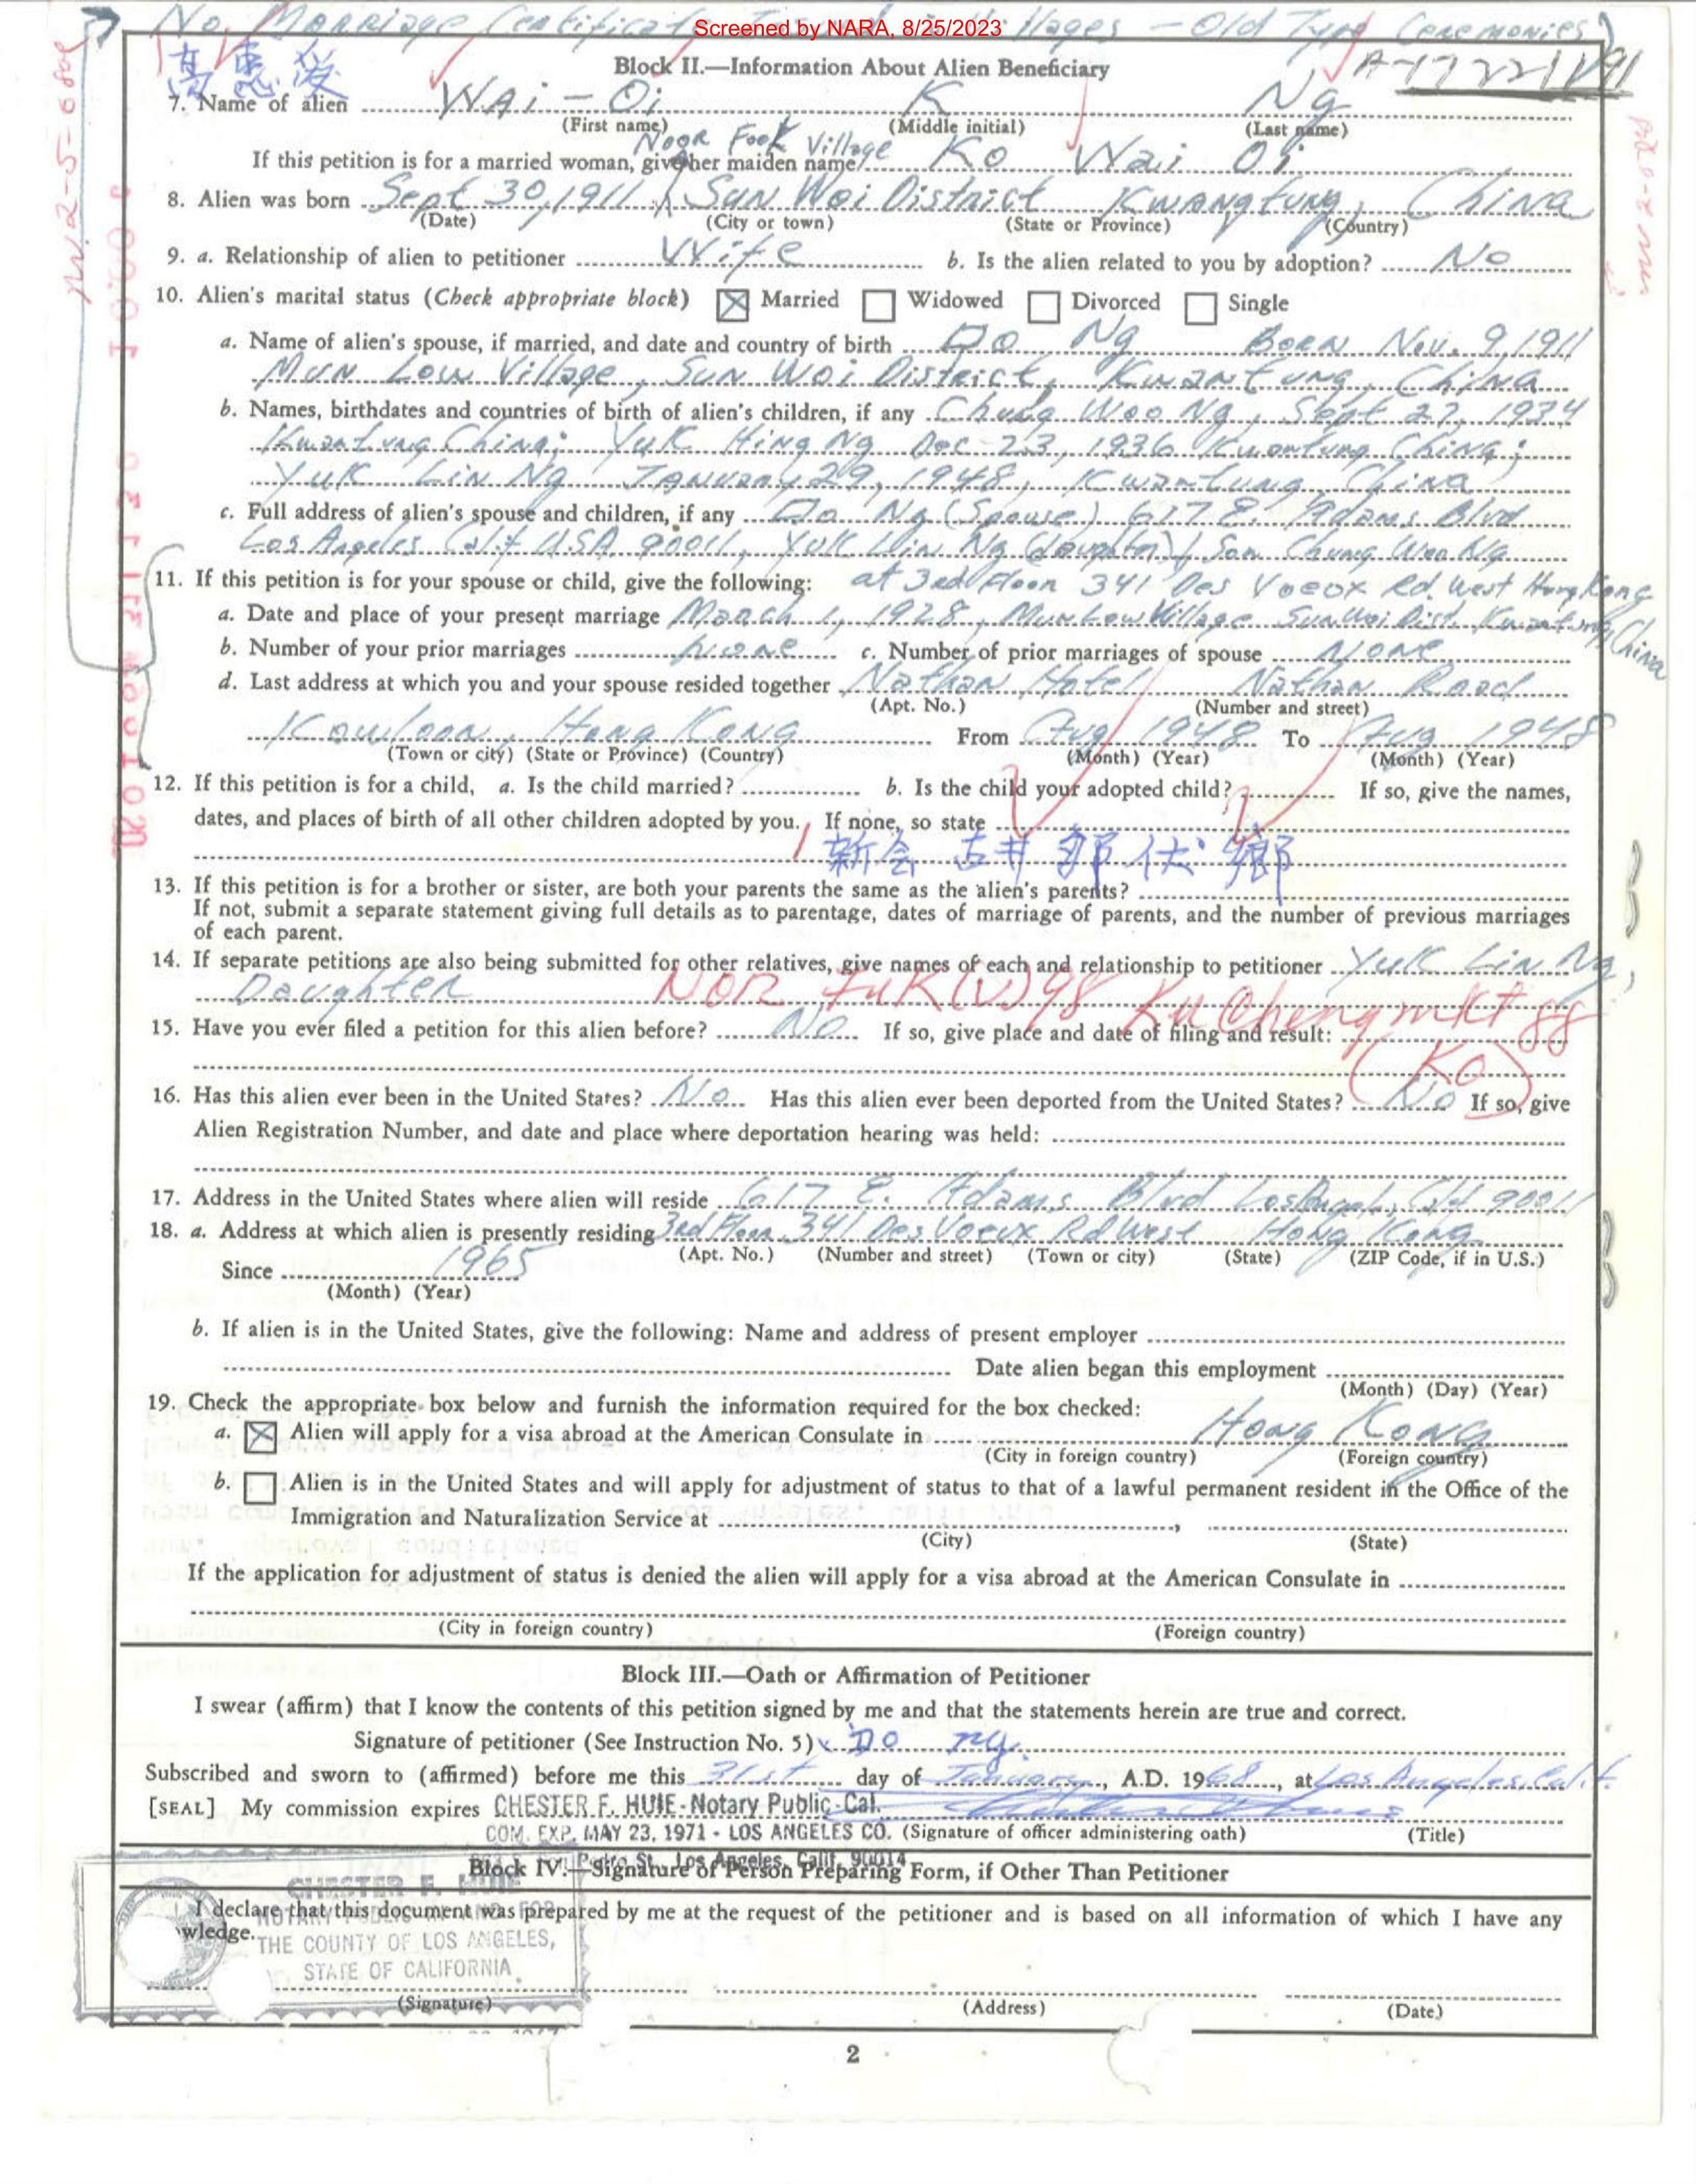 No Marriage Certificate Issued in Villages - Old Type Ceremonies)
Screened by NARA, 8/25/2023
Block II.—Information About Alien Beneficiary
7. Name of alien Wai-Oi K Ng
(First name) (Middle initial) (Last name)
Noor Fook Village
If this petition is for a married woman, give her maiden name Ko Wai Oi
8. Alien was born Sept 30, 1911 Sun Woi District Kwangtung, China
(Date) (City or town) (State or Province) (Country)
9. a. Relationship of alien to petitioner Wife b. Is the alien related to you by adoption? No
10. Alien's marital status (Check appropriate block) Married Widowed Divorced Single
a. Name of alien's spouse, if married, and date and country of birth Do Ng Born Nov. 9, 1911
Mun Low Village, Sun Woi District, Kwantung, China
b. Names, birthdates and countries of birth of alien's children, if any Chung Woo Ng, Sept 27, 1934
Kwantung China; Yuk Hing Ng Dec 23, 1936 Kwantung China;
Yuk Lin Ng January 29, 1948, Kwantung, China
c. Full address of alien's spouse and children, if any Do Ng (Spouse) 617 E. Adams Blvd
Los Angeles Calif USA 90011, Yuk Lin Ng (daughter) Son Chung Woo Ng
11. If this petition is for your spouse or child, give the following: at 3rd Floor 341 Des Voeox Rd. West Hong Kong
a. Date and place of your present marriage March 1, 1928, Mun Low Village Sun Woi Dist. Kwantung, China
b. Number of your prior marriages none c. Number of prior marriages of spouse None
d. Last address at which you and your spouse resided together Nathan Hotel Nathan Road
(Apt. No.) (Number and street)
Kowloon, Hong Kong From Aug 1948 To Aug 1948
(Town or city) (State or Province) (Country) (Month) (Year) (Month) (Year)
12. If this petition is for a child, a. Is the child married? b. Is the child your adopted child? If so, give the names,
dates, and places of birth of all other children adopted by you. If none, so state
新会 古井 那伏 鄉
13. If this petition is for a brother or sister, are both your parents the same as the alien's parents?
If not, submit a separate statement giving full details as to parentage, dates of marriage of parents, and the number of previous marriages
of each parent.
14. If separate petitions are also being submitted for other relatives, give names of each and relationship to petitioner Yuk Lin Ng,
Daughter NOR FUK (V) 98 Ku Cheng mkt 88
15. Have you ever filed a petition for this alien before? No If so, give place and date of filing and result:
(KO)
16. Has this alien ever been in the United States? No Has this alien ever been deported from the United States? No If so, give
Alien Registration Number, and date and place where deportation hearing was held:
17. Address in the United States where alien will reside 617 E. Adams Blvd Los Angeles, Calif 90011
18. a. Address at which alien is presently residing 3rd Floor, 341 Des Voeux Rd West Hong Kong
(Apt. No.) (Number and street) (Town or city) (State) (ZIP Code, if in U.S.)
Since 1965
(Month) (Year)
b. If alien is in the United States, give the following: Name and address of present employer
Date alien began this employment
(Month) (Day) (Year)
19. Check the appropriate box below and furnish the information required for the box checked:
a. Alien will apply for a visa abroad at the American Consulate in Hong Kong
(City in foreign country) (Foreign country)
b. Alien is in the United States and will apply for adjustment of status to that of a lawful permanent resident in the Office of the
Immigration and Naturalization Service at ,
(City) (State)
If the application for adjustment of status is denied the alien will apply for a visa abroad at the American Consulate in
(City in foreign country) (Foreign country)
Block III.—Oath or Affirmation of Petitioner
I swear (affirm) that I know the contents of this petition signed by me and that the statements herein are true and correct.
Signature of petitioner (See Instruction No. 5) x Do Ng
Subscribed and sworn to (affirmed) before me this 31st day of January, A.D. 1968, at Los Angeles, Calif.
[SEAL] My commission expires CHESTER F. HUIE-Notary Public-Cal.
COM. EXP. MAY 23, 1971 - LOS ANGELES CO. (Signature of officer administering oath) (Title)
Pedro St., Los Angeles, Calif. 90014
Block IV.—Signature of Person Preparing Form, if Other Than Petitioner
CHESTER F. HUIE
I declare that this document was prepared by me at the request of the petitioner and is based on all information of which I have any
wledge.
NOTARY PUBLIC IN AND FOR
THE COUNTY OF LOS ANGELES,
STATE OF CALIFORNIA
(Signature) (Address) (Date)
2